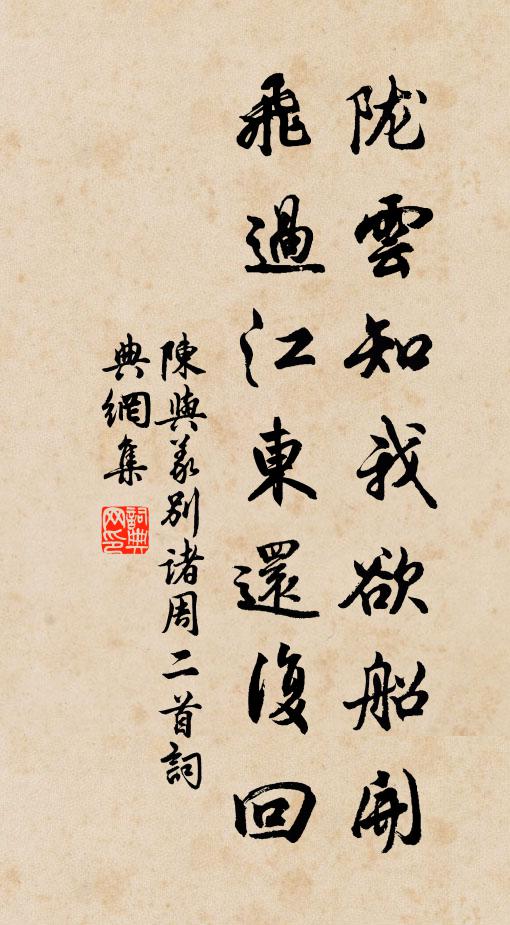 陇雲知我欲船開
飛過江東還復回
陳與義別諸周二首詞
典網集
詞典網印